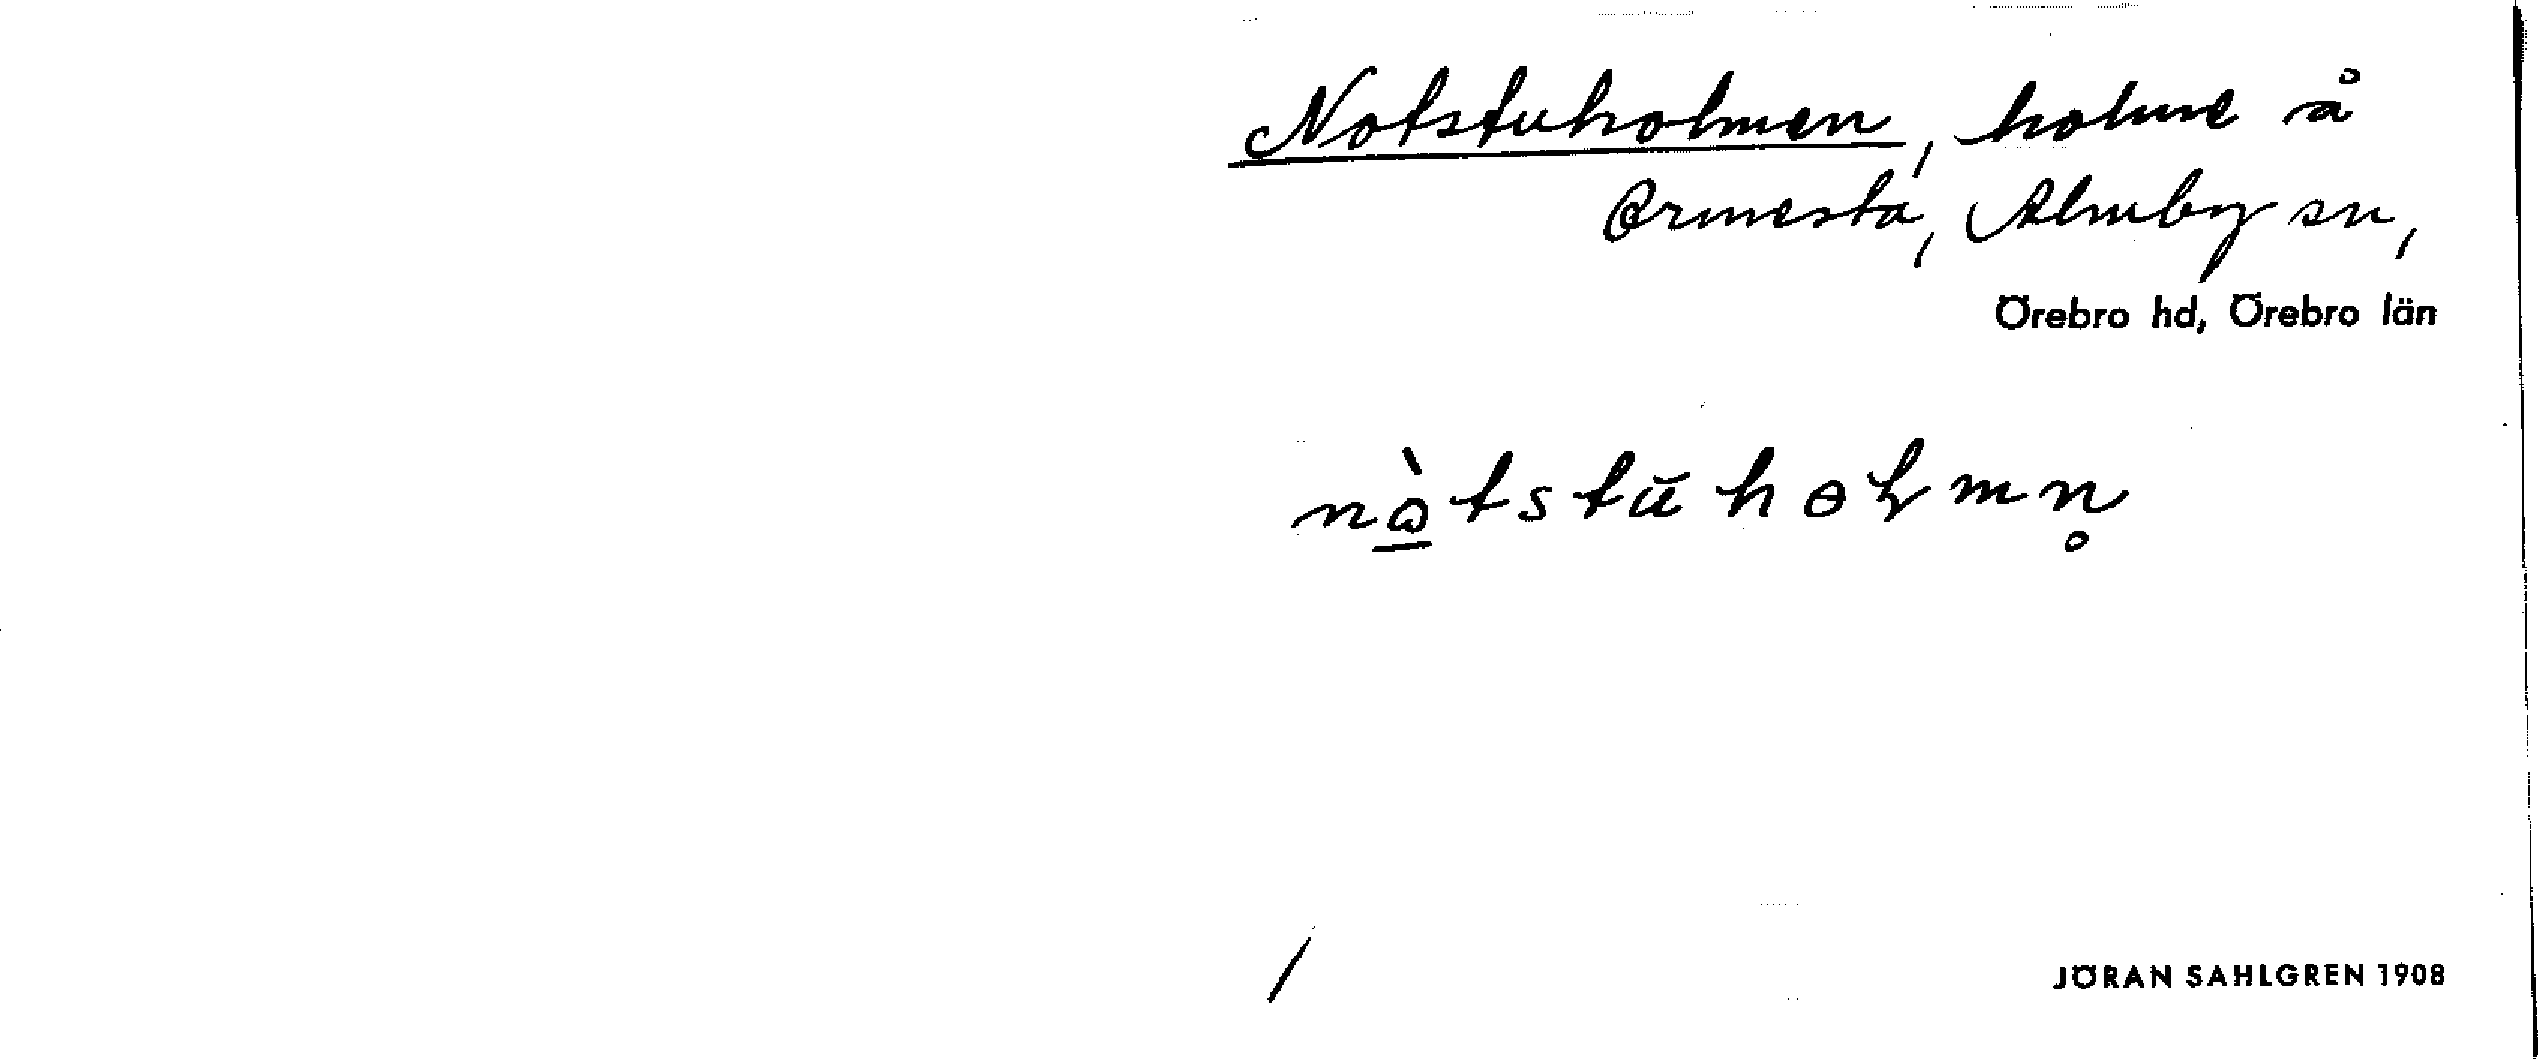 Notstuholmen, holme å
Ormesta, Almby sn,
Örebro hd, Örebro län
nò̲tstŭhoɫmn̥
/
JÖRAN SAHLGREN 1908